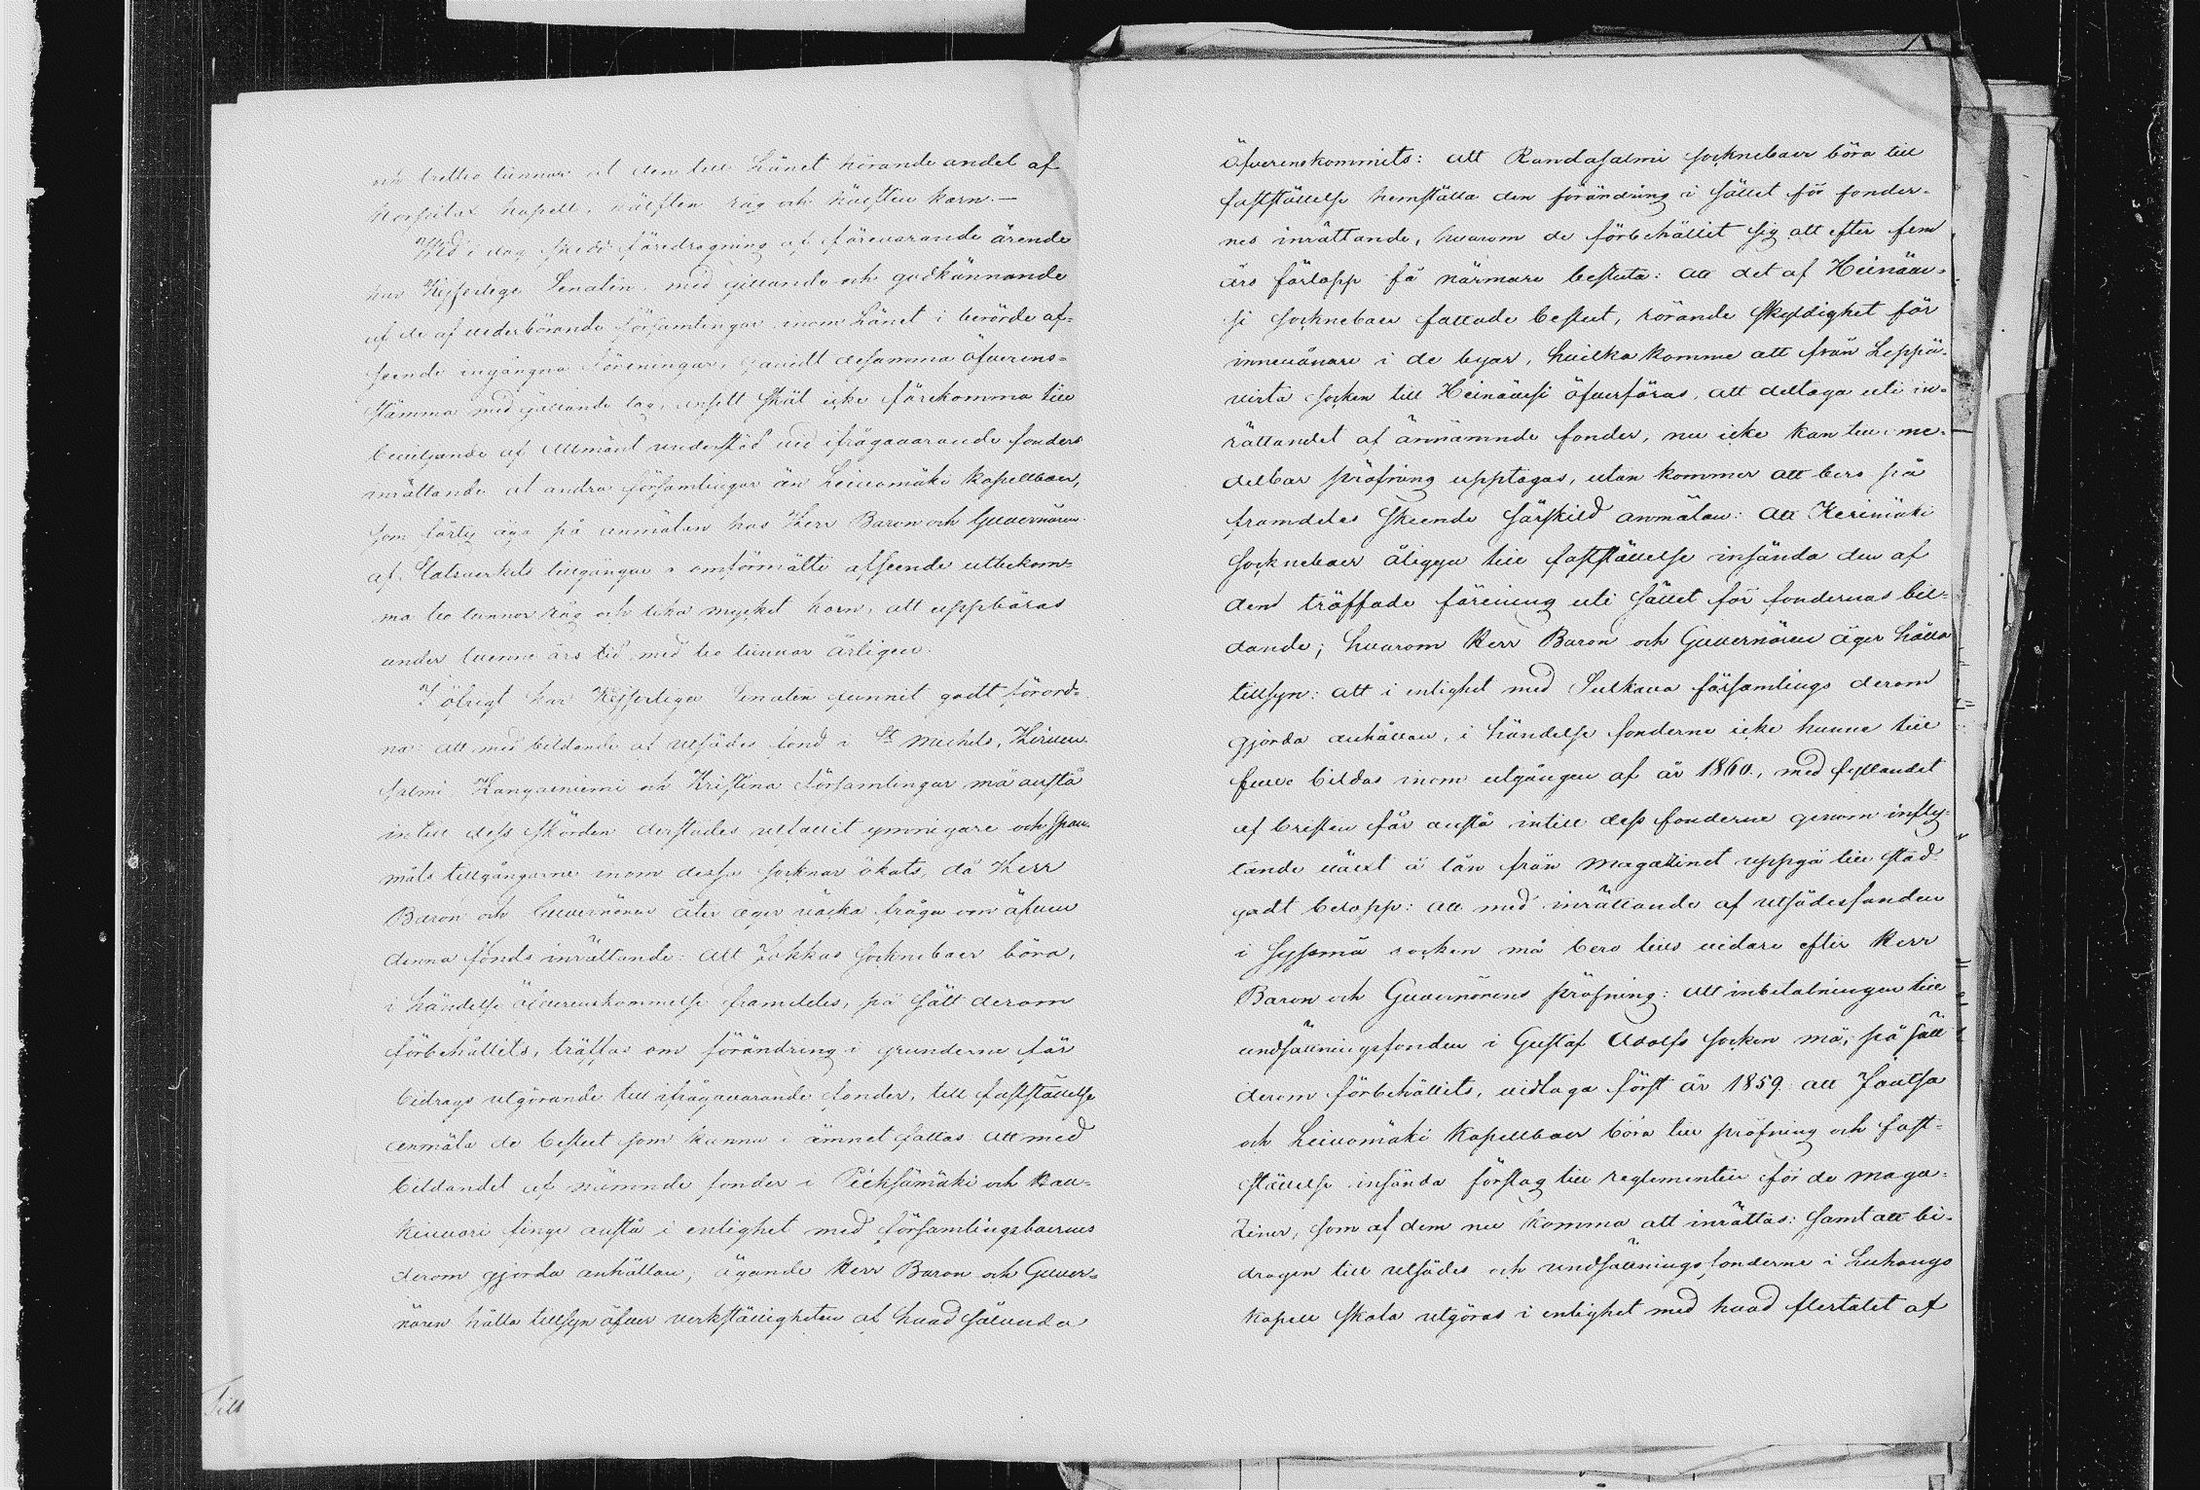 och trettio tunnor af den till Länet hörande andel af
kapell, hälften råg och hälften korn.—
Vid i dag skedd föredragning af förevarande ärende
har Kejserliga Senaten, med gillande och godkännande
af de af vederbörande församlingar inom Länet i berörde af-
seende ingångna föreningar, såvidt desamma öfverens-
stämma med gällande lag, ansett skäl icke förekomma till
beviljande af allmänt understöd vid ifrågavarande fonders
inrättande åt andra församlingar än Leivomäki kapellboer,
som förty äga på anmälan hos Herr Baron och Guvernören
af Statsverkets tillgångar i omförmälte afseende utbekom-
ma tio tunnor råg och lika mycket korn, att uppbäras
under tvenne års tid med tio tunnor årligen.
I öfrigt har Kejserliga Senaten funnit godt förord-
na: att med bildande af utsädes fond i St Michels, Hirven-
salmi Kangasniemi och Kristina församlingar må anstå
intill dess skörden derstädes utfallit ymnigare och span-
måls tillgångarne inom dessa socknar ökats, då Herr
Baron och Guvernören åter äger väcka fråga om äfven
denna fonds inrättande: att Jokkas sockneboer böra,
i händelse öfverenskommelse framdeles, på sätt derom
förbehållits, träffas om förändring i grunderne för
bidrags utgörande till ifrågavarande fonder, till fastställelse
anmäla de beslut som kunna i ämnet fattas: att med
bildandet af nämnde fonder i Pieksämäki och Hau-
kivuori finge anstå i enlighet med församlingsboernes
derom gjorda anhållan, ägande Herr Baron och Guver-
nören hålla tillsyn öfver verkställigheten af hvad sålunda
öfverenskommits: att Randasalmi sockneboer böra till
fastställelse hemställa den förändring i sättet för fonder-
nes inrättande, hvarom de förbehållit sig att efter fem
års förlopp få närmare besluta: att det af Heinäve-
si sockneboer fattade beslut, rörande skyldighet för
innevånare i de byar, hvilka komme att från Leppä-
virta socken till Heinävesi öfverföras, att deltaga uti in-
rättandet af ännämnde fonder, nu icke kan till ome-
delbar pröfning upptagas, utan kommer att bero på
framdeles skeende särskild anmälan: att Kerimäki
sockneboer åligger till fastställelse insända den af
dem träffade förening uti sättet för fondernas bil-
dande; hvarom Herr Baron och Guvernören äger hålla
tillsyn: att i enlighet med Sulkava församlings derom
gjorda anhållan, i händelse fonderna icke hunne till
fullo bildas inom utgången af år 1860., med fyllandet
af bristen får anstå intill dess fonderne genom infly-
tande växt å lån från magazinet uppgå till stad-
gadt belopp: att med inrättande af utsädesfonden
i Sysmä socken må bero tills vidare efter Herr
Baron och Guvernörens pröfning: att inbetalningen till
undsättningsfonden i Gustaf Adolfs socken må, på sätt
derom förbehållits, vidtaga först år 1859. att Joutsa
och Leivomäki Kapellboer böra till pröfning och fast-
ställelse insända förslag till reglementen för de maga-
ziner, som af dem nu komma att inrättas: samt att bi-
dragen till utsädes och undsättnings fonderne i Luhanga
Kapell skola utgöras i enlighet med hvad flertalet af